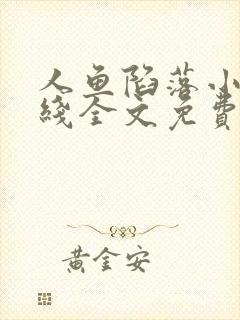 人鱼陷落小
线全文免费
黄金安